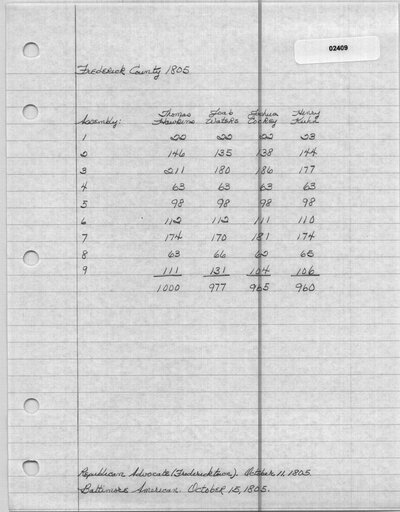 02409
Frederick County 1805
Thomas Joab Joshua Henry
Assembly: Hawkins Waters Cockey Kuhn
1 22 22 22 23
2 146 135 138 144
3 211 180 186 177
4 63 63 63 63
5 98 98 98 98
6 112 112 111 110
7 174 170 181 174
8 63 66 62 65
9 111 131 104 106
1000 977 965 960
Republican Advocate (Fredericktown). October 11, 1805.
Baltimore American. October 15, 1805.